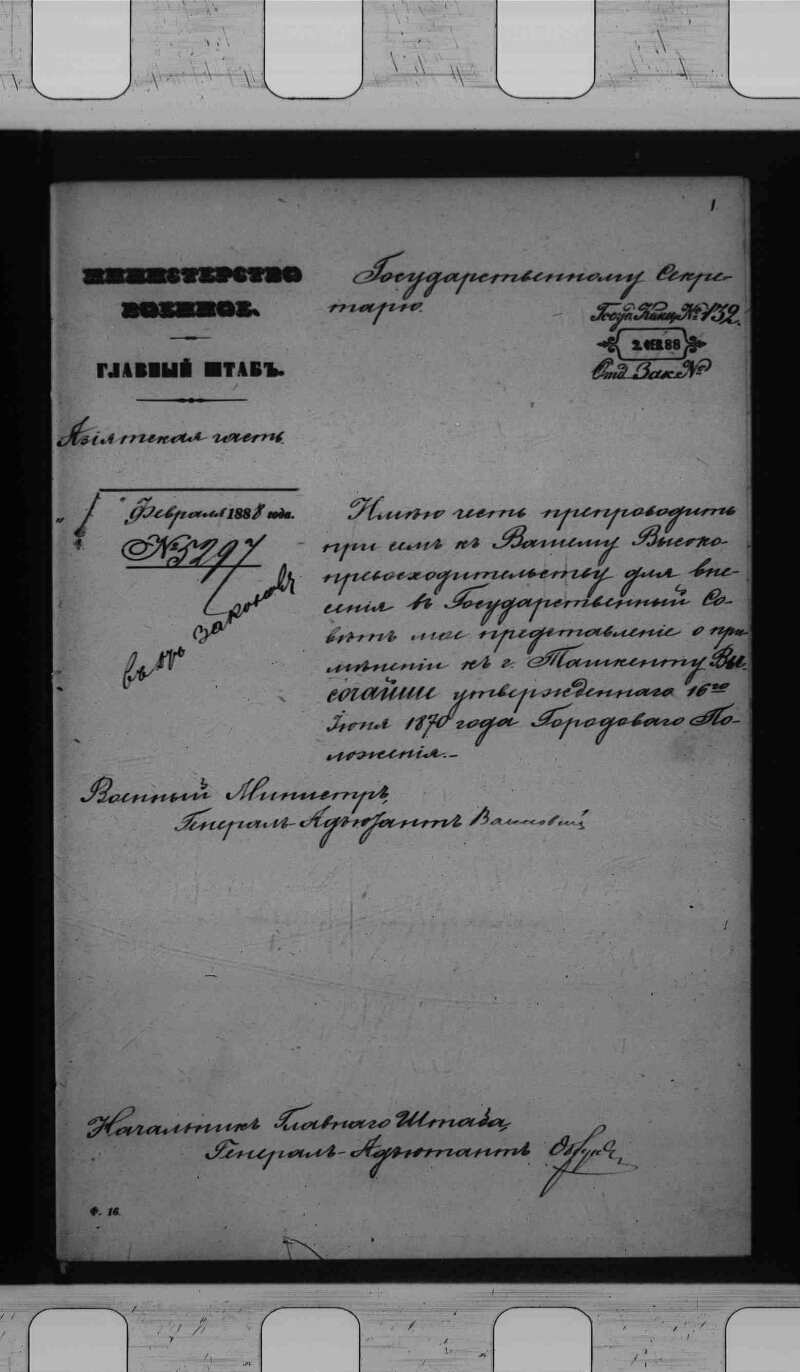 1
МИНИСТЕРСТВО
ВОЕННОЕ.
ГЛАВНЫЙ ШТАБЪ.
Азіятская часть
„1" Февраля 1888 года.
№ 5297
Въ Законовъ
Государственному Секре-
тарю.
Госуд. Канц. № 132.
2. 88
Отд. Зак. №
Имѣю честь препроводить
при семъ къ Вашему Высоко-
превосходительству для вне-
сенія въ Государственный Со-
вѣтъ мое представленіе о при-
мѣненіи къ г. Ташкенту Вы-
сочайше утвержденнаго 16го
Іюня 1870 года Городоваго По-
ложенія.-
Военный Министръ,
Генералъ-Адъютантъ Ванновскій
Начальникъ Главнаго Штаба,
Генералъ-Адъютантъ Обруч
Ф. 16.